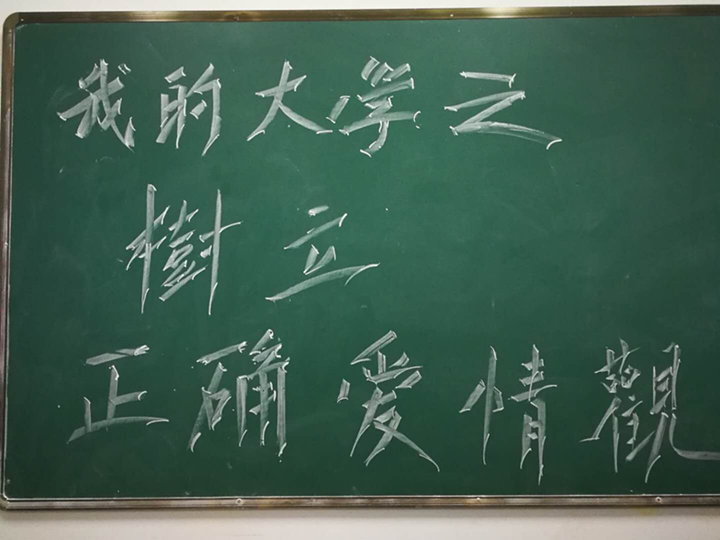 我的大学之
樹立
正确爱情觀